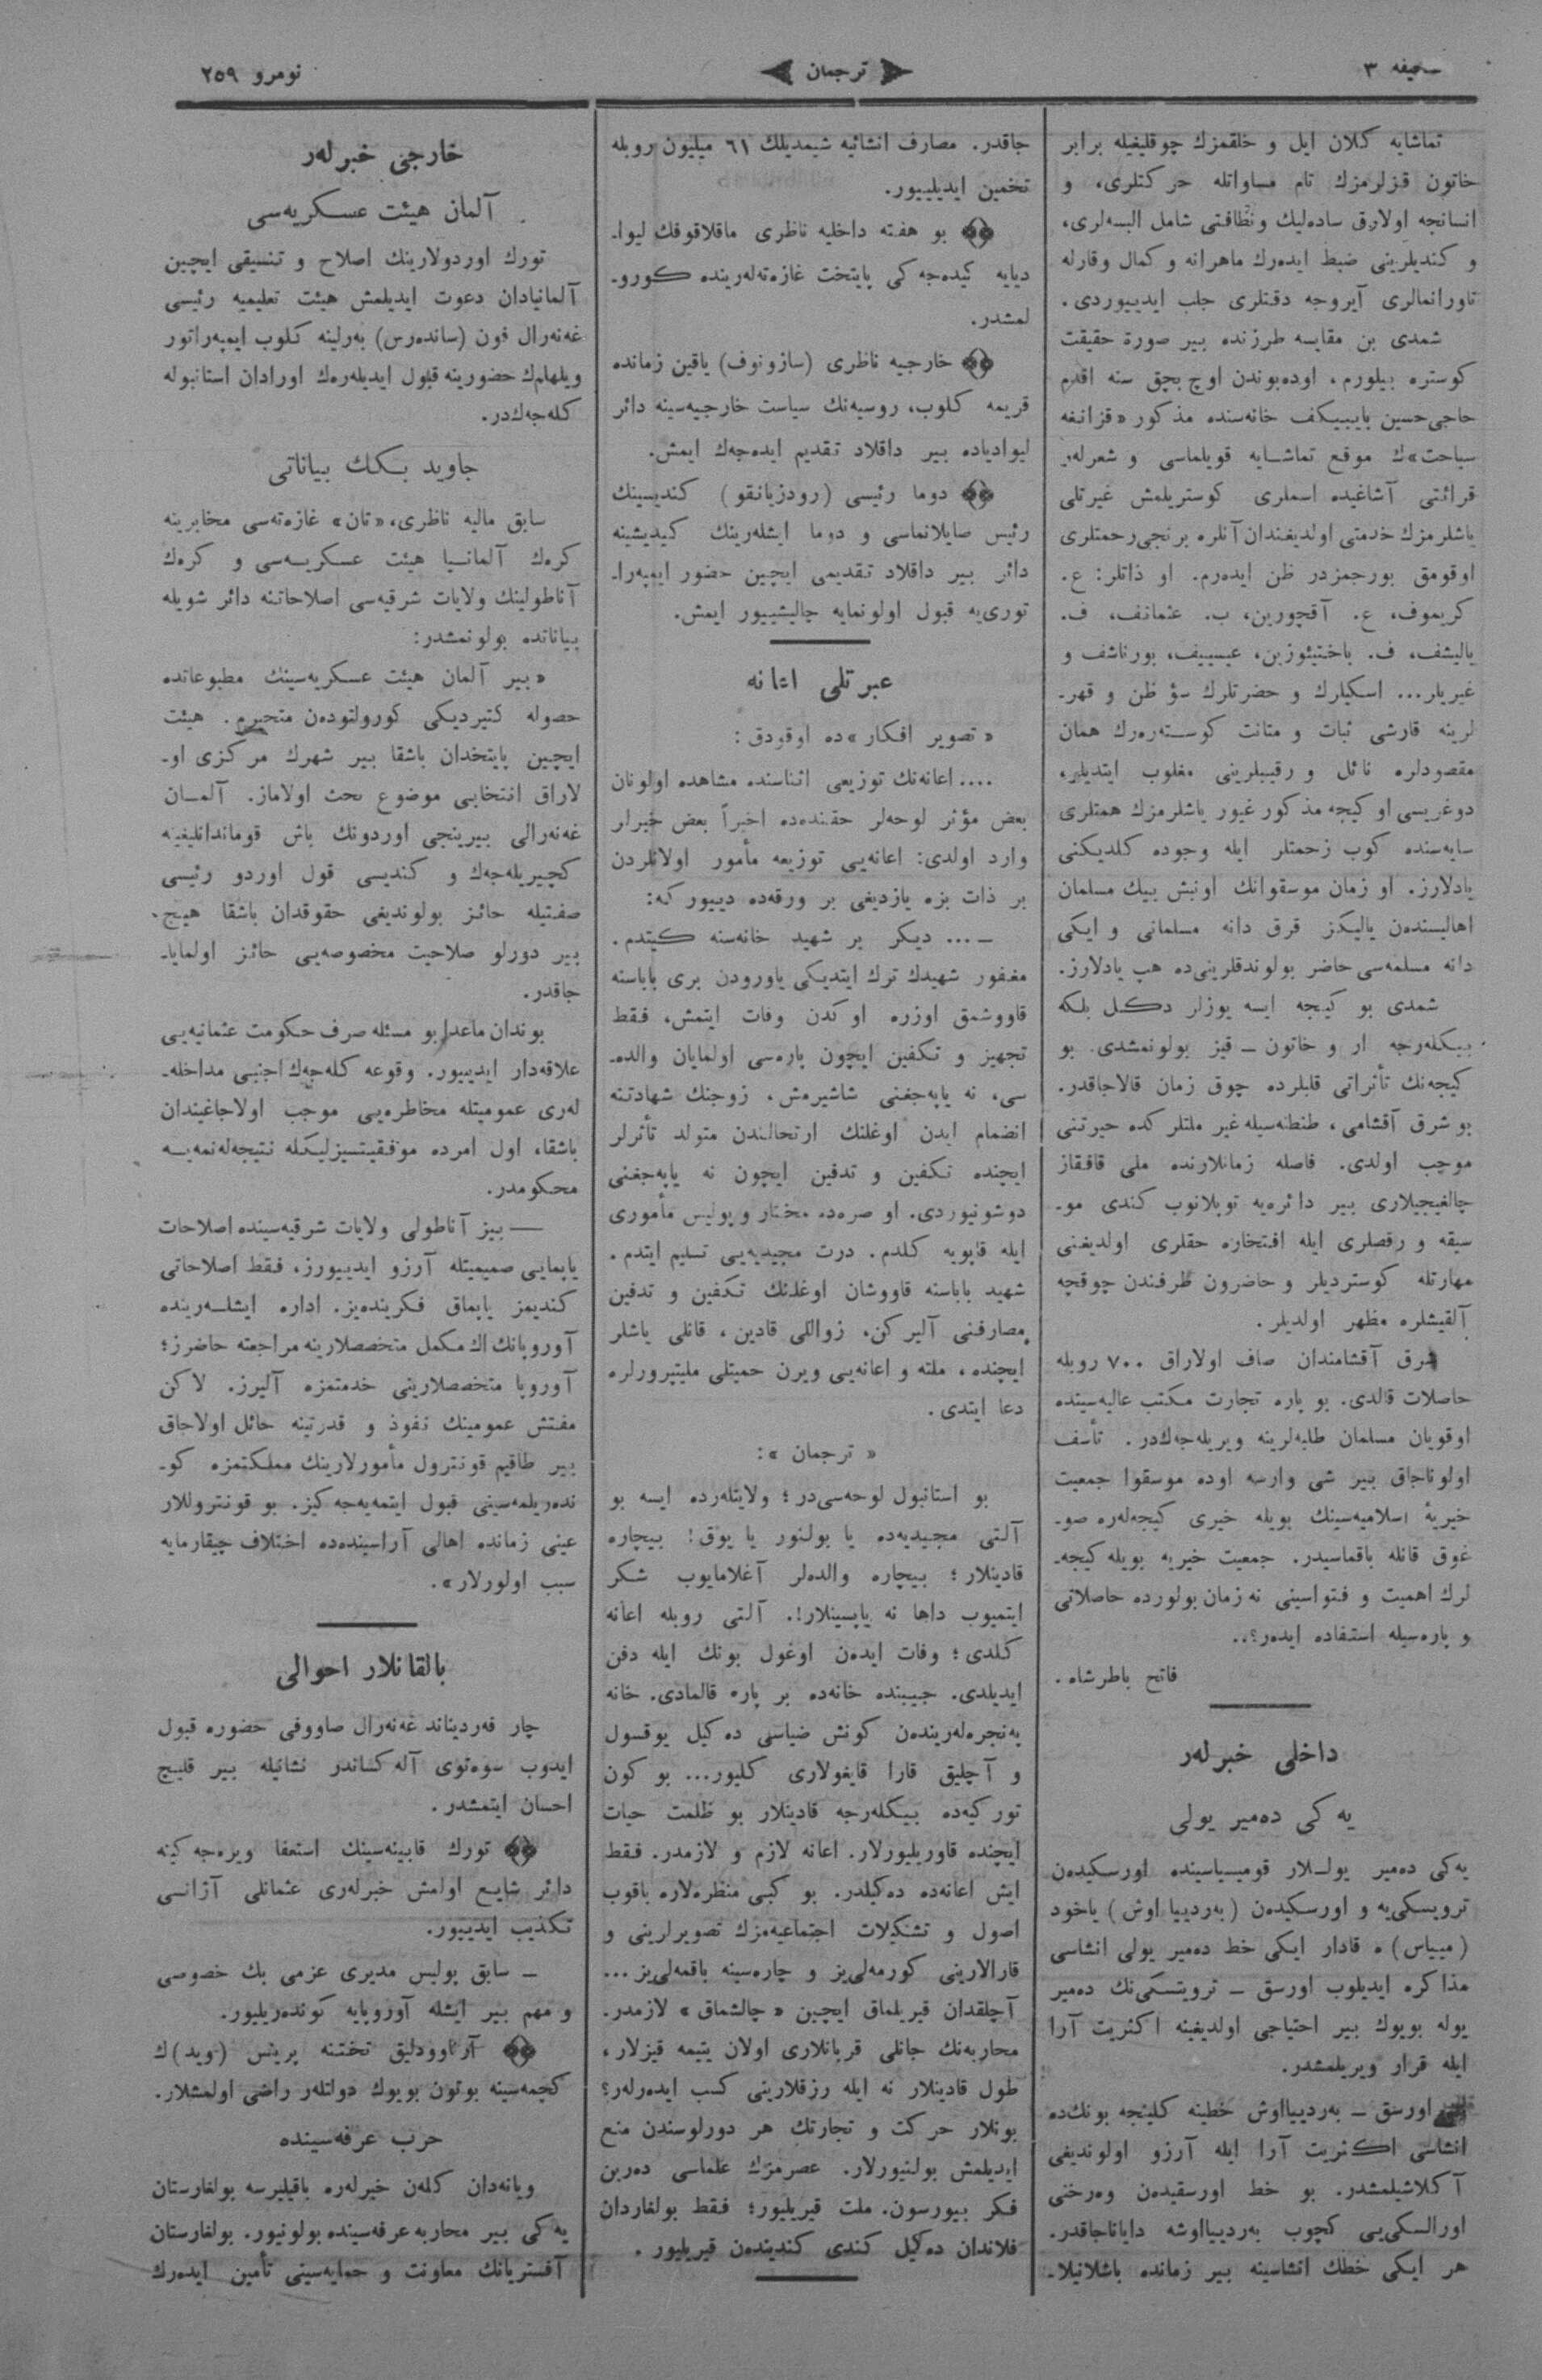 صحيفه ٣
ترجمان
نومرو ٢٥٩
تماشايه كلان ايل و خلقمزك چوقليغيله برابر
خاتون قزلرمزك تام مساواتله حركتلری، و
انسانجه اولارق ساده‌ليك ونظافتی شامل البسه‌لری،
و كنديلرينی ضبط ايده‌رك ماهرانه و كمال وقارله
تاورانمالری آيروجه دقتلری جلب ايدييوردی.
شمدی بن مقايسه طرزنده بير صورة حقيقت
كوستره بيلورم، اوده‌بوندن اوچ بچق سنه اقدم
حاجی حسين بايبيكف خانه‌سنده مذكور «قزانغه
سياحت»ك موقع تماشايه قويلماسی و شعرلەر
قرائتی آشاغيده اسملری كوستريلمش غيرتلی
ياشلرمزك خدمتی اولديغندان آنلره برنجی‌رحمتلری
اوقومق بورجمزدر ظن ايده‌رم. او ذاتلر: ع.
كريموف، ع. آقچورين، ب. عثمانف، ف.
ياليشف، ف. باختيئوزين، عيسييف، بورناشف و
غيريلر... اسكيلرك و حضرتلرك سؤ ظن و قهر-
لرينه قارشی ثبات و متانت كوسته‌ره‌رك همان
مقصودلره نائل و رقيبلرينی مغلوب ايتديلر،
دوغريسی او كيجه مذكور غيور ياشلرمزك همتلری
سايه‌سنده كوب زحمتلر ايله وجوده كلديكنی
يادلارز. او زمان موسقوانك اونبش بيك مسلمان
اهاليسندەن ياليكز قرق دانه مسلمانی و ايكی
دانه مسلمه‌سی حاضر بولوندقلرينی‌ده هپ يادلارز.
شمدی بو كيجه ايسه يوزلر دكل بلكه
بيكلەرجه ار و خاتون ــ قيز بولونمشدی. بو
كيجه‌نك تأثراتی قلبلرده چوق زمان قالاجاقدر.
بو شرق آقشامی، طنطنه‌سيله غير ملتلر كده حيرتنی
موجب اولدی. فاصله زمانلارنده ملی قافقاز
چالغيجيلاری بير دائره‌يه توپلانوب كندی مو-
سيقه و رقصلری ايله افتخاره حقلری اولديغنی
مهارتله كوسترديلر و حاضرون طرفندن چوقچه
آلقيشلره مظهر اولديلر.
شرق آقشامندان صاف اولاراق ٧٠٠ روبله
حاصلات قالدی. بو پاره تجارت مكتب عاليه‌سينده
اوقويان مسلمان طلبه‌لرينه ويريله‌جه‌كدر. تأسف
اولوناجاق بير شی وارسه اوده موسقوا جمعيت
خيريهٔ اسلاميه‌سينك بويله خيری كيجه‌لەره صو-
غوق قانله باقماسيدر. جمعيت خيريه بويله كيجه-
لرك اهميت و فتواسينی نه زمان بولورده حاصلاتی
و پاره‌سيله استفاده ايده‌ر؟..
فاتح باطرشاه.
داخلی خبرلەر
يەكی دەمير يولی
يەكی دەمير يوللار قوميسياسينده اورسكيدەن
ترويسكی‌يه و اورسكيدەن (بەردييا اوش) ياخود
(ميياس)ه قادار ايكی خط دەمير يولی انشاسی
مذاكره ايديلوب اورسق ــ ترويتسكی‌نك دەمير
يوله بويوك بير احتياجی اولديغينه اكثريت آرا
ايله قرار ويريلمشدر.
اورسق ــ بەردييااوش خطينه كلينجه بونك‌ده
انشاسی اكثريت آرا ايله آرزو اولونديغی
آكلاشيلمشدر. بو خط اورسقيدەن وەرخنی
اورالسكی‌يی كچوب بەردييااوشه داياناجاقدر.
هر ايكی خطك انشاسينه بير زمانده باشلانيلا-
جاقدر. مصارف انشائيه شيمديلك ٦١ ميليون روبله
تخمين ايديلييور.
بو هفته داخليه ناظری ماقلاقوفك ليوا-
ديايه كيده‌جه‌كی پايتخت غازه‌ته‌لەرينده كورو-
لمشدر.
خارجيه ناظری (سازونوف) ياقين زمانده
قريمه كلوب، روسيه‌نك سياست خارجيه‌سينه دائر
ليوادياده بير داقلاد تقديم ايده‌جه‌ك ايمش.
دوما رئيسی (رودزيانقو) كنديسينك
رئيس صايلانماسی و دوما ايشلەرينك كيديشينه
دائر بير داقلاد تقديمی ايچين حضور ايمپەرا-
توری‌يه قبول اولونمايه چاليشييور ايمش.
عبرتلی اعانه
«تصوير افكار»ده اوقودق:
.... اعانه‌نك توزيعی اثناسنده مشاهده اولونان
بعض مؤثر لوحه‌لر حقنده‌ده اخيراً بعض خبرلر
وارد اولدی: اعانه‌يی توزيعه مأمور اولانلردن
بر ذات بزه يازديغی بر ورقه‌ده دييور كه:
ــ ... ديكر بر شهيد خانه‌سنه كيتدم.
مغفور شهيدك ترك ايتديكی ياورودن بری باباسنه
قاووشمق اوزره اوكدن وفات ايتمش، فقط
تجهيز و تكفين ايچون پاره‌سی اولمايان والده-
سی، نه ياپه‌جغنی شاشيرمش، زوجنك شهادتنه
انضمام ايدن اوغلنك ارتحالندن متولد تأثرلر
ايچنده تكفين و تدفين ايچون نه ياپه‌جغنی
دوشونيوردی. او صره‌ده مختار و پوليس مأموری
ايله قاپويه كلدم. درت مجيديه‌يی تسليم ايتدم.
شهيد باباسنه قاووشان اوغلنك تكفين و تدفين
مصارفنی آليركن، زواللی قادين، قانلی ياشلر
ايچنده، ملته و اعانه‌يی ويرن حميتلی مليتپرورلره
دعا ايتدی.
«ترجمان»:
بو استانبول لوحه‌سی‌در؛ ولايتلەرده ايسه بو
آلتی مجيديه‌ده يا بولنور يا يوق! بيچاره
قادينلار؛ بيچاره والده‌لر آغلامايوب شكر
ايتميوب داها نه ياپسينلار!. آلتی روبله اعانه
كلدی؛ وفات ايدەن اوغول بونك ايله دفن
ايديلدی. جيبنده خانه‌ده بر پاره قالمادی. خانه
پەنجره‌لەريندەن كونش ضياسی دەكيل يوقسول
و آچليق قارا قايغولاری كليور... بو كون
توركيه‌ده بيكلەرجه قادينلار بو ظلمت حيات
ايچنده قاوريليورلار. اعانه لازم و لازمدر. فقط
ايش اعانه‌ده دەكيلدر. بو كبی منظره‌لاره باقوب
اصول و تشكيلات اجتماعيه‌مزك تصويرلرينی و
قارالارينی كورمەلی‌يز و چاره‌سينه باقمه‌لی‌يز...
آچلقدان قيريلماق ايچين «چالشماق» لازمدر.
محاربه‌نك جانلی قربانلاری اولان يتيمه قيزلار،
طول قادينلار نه ايله رزقلارينی كسب ايدەرلەر؟
بونلار حركت و تجارتك هر دورلوسندن منع
ايديلمش بولنيورلار. عصرمزك علماسی دەرين
فكر بيورسون. ملت قيريليور؛ فقط بولغاردان
فلاندان دەكيل كندی كنديندەن قيريليور.
خارجی خبرلەر
آلمان هيئت عسكريه‌سی
تورك اوردولارينك اصلاح و تنسيقی ايچين
آلمانيادان دعوت ايديلمش هيئت تعليميه رئيسی
غەنەرال فون (ساندەرس) بەرلينه كلوب ايمپەراتور
ويلهلمك حضورينه قبول ايديلەرەك اورادان استانبوله
كله‌جه‌كدر.
جاويد بكك بياناتی
سابق ماليه ناظری، «تان» غازه‌ته‌سی مخابرينه
كرەك آلمانيا هيئت عسكريه‌سی و كرەك
آناطولينك ولايات شرقيه‌سی اصلاحاتنه دائر شويله
بياناتده بولونمشدر:
«بير آلمان هيئت عسكريه‌سينك مطبوعاتده
حصوله كتيرديكی كورولتودەن متحيرم. هيئت
ايچين پايتخدان باشقا بير شهرك مركزی او-
لاراق انتخابی موضوع بحث اولاماز. آلمان
غەنەرالی بيرينجی اوردونك باش قوماندانليغينه
كچيريله‌جه‌ك و كنديسی قول اوردو رئيسی
صفتيله حائز بولونديغی حقوقدان باشقا هيچ
بير دورلو صلاحيت مخصوصه‌يی حائز اولمايا-
جاقدر.
بوندان ماعدا بو مسئله صرف حكومت عثمانيه‌يی
علاقه‌دار ايدييور. وقوعه كله‌جه‌ك اجنبی مداخله-
لەری عموميتله مخاطره‌يی موجب اولاجاغيندان
باشقا، اول امرده موفقيتسيزليكله نتيجه‌لەنمەيه
محكومدر.
ــ بيز آناطولی ولايات شرقيه‌سينده اصلاحات
ياپمايی صميميتله آرزو ايدييورز، فقط اصلاحاتی
كنديمز ياپماق فكرينده‌يز. اداره ايشلەرينده
آوروپانك اك مكمل متخصصلارينه مراجعته حاضرز؛
آوروپا متخصصلارينی خدمتمزه آليرز. لاكن
مفتش عمومينك نفوذ و قدرتينه حائل اولاجاق
بير طاقيم قونترول مأمورلارينك مملكتمزه كو-
ندەريلمەسينی قبول ايتمەيه‌جه‌كيز. بو قونتروللار
عينی زمانده اهالی آراسينده‌ده اختلاف چيقارمايه
سبب اولورلار».
بالقانلار احوالی
چار فەرديناند غەنەرال صاووفی حضوره قبول
ايدوب سوەتوی آلەكساندر نشانيله بير قليچ
احسان ايتمشدر.
تورك قابينه‌سينك استعفا ويرەجه‌كينه
دائر شايع اولمش خبرلەری عثمانلی آژانسی
تكذيب ايدييور.
ــ سابق پوليس مديری عزمی بك خصوصی
و مهم بير ايشله آوروپايه كوندەريليور.
آرناوودليق تختنه پرينس (ويد)ك
كچمەسينه بوتون بويوك دولتلەر راضی اولمشلار.
حرب عرفه‌سينده
ويانه‌دان كلەن خبرلەره باقيليرسه بولغارستان
يەكی بير محاربه عرفه‌سينده بولونيور. بولغارستان
آفستريانك معاونت و حمايه‌سينی تأمين ايدەرك